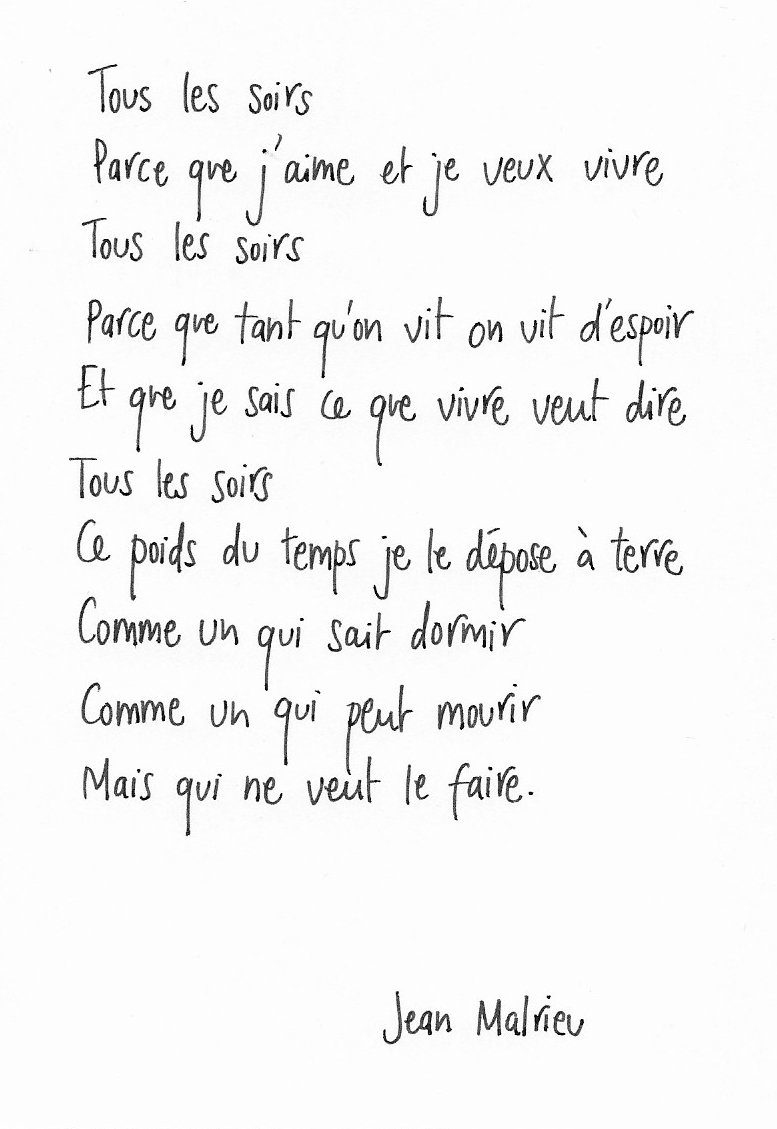 Tous les soirs
Parce que j'aime et je veux vivre
Tous les soirs
Parce que tant qu'on vit on vit d'espoir
Et que je sais ce que vivre veut dire
Tous les soirs
Ce poids du temps je le dépose à terre
Comme un qui sait dormir
Comme un qui peut mourir
Mais qui ne veut le faire.
Jean Malrieu